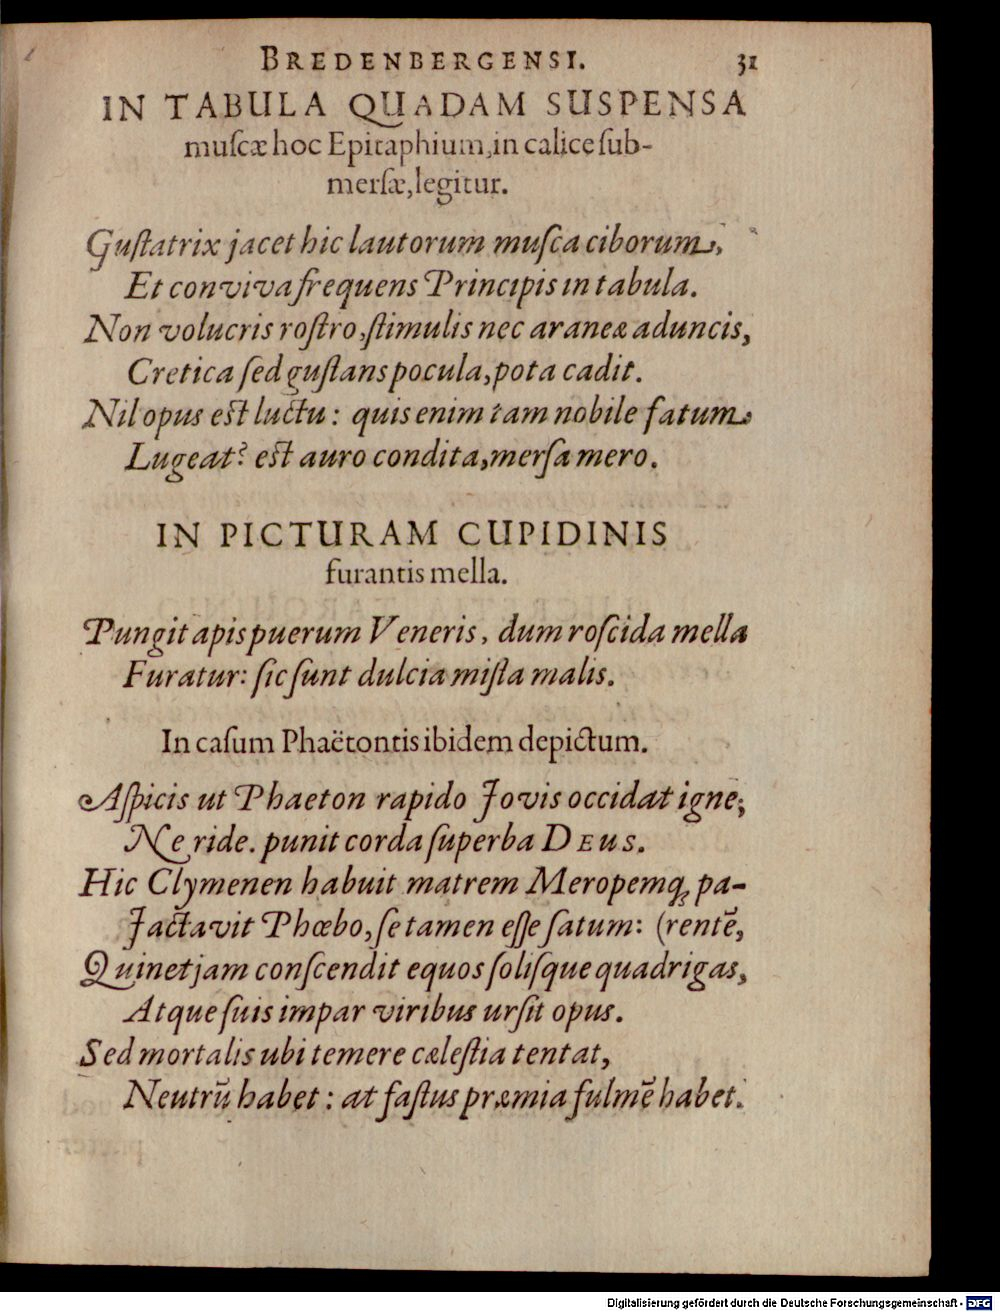 BREDENBERGENSI. 31
IN TABULA QUADAM SUSPENSA
muſcæ hoc Epitaphium, in calice ſub-
merſæ, legitur.
Guſtatrix jacet hic lautorum muſca ciborum,
Et conviva frequens Principis in tabula.
Non volucris roſtro, ſtimulis nec araneæ aduncis,
Cretica ſed guſtans pocula, pota cadit.
Nil opus eſt luctu: quis enim tam nobile fatum
Lugeat? eſt auro condita, merſa mero.
IN PICTURAM CUPIDINIS
furantis mella.
Pungit apis puerum Veneris, dum roſcida mella
Furatur: ſic ſunt dulcia miſta malis.
In caſum Phaëtontis ibidem depictum.
Aſpicis ut Phaeton rapido Jovis occidat igne;
Ne ride. punit corda ſuperba DEUS.
Hic Clymenen habuit matrem Meropemq́ꝫ pa-
Jactavit Phœbo, ſe tamen eſſe ſatum: (rentē,
Quinetjam conſcendit equos ſolisque quadrigas,
Atque ſuis impar viribus urſit opus.
Sed mortalis ubi temere cæleſtia tentat,
Neutrū habet: at faſtus præmia fulmē habet.
Digitalisierung gefördert durch die Deutsche Forschungsgemeinschaft - DFG